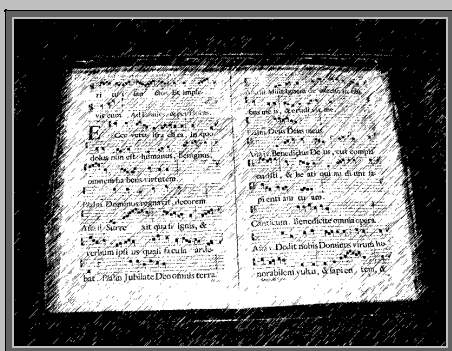 ri tu i Et imple
vit eum. Ad Laudes, & per Horas.
E Cce verus Isra elita, In quo
dolus non est: humanus, benignus,
omnem ha bens virtutem.
Psalm. Dominus regnavit, decorem
Surre xit quasi ignis, &
verbum ipsi us quasi facula arde
bat. Psalm. Jubilate Deo omnis terra.
Misit ignem de excelso in
me is, & erudi vit me.
Psalm. Deus Deus meus.
Benedictus De us, cui compla
cuisti, & be ati qui au di unt sa
pi enti am tu am.
Canticum. Benedicite omnia opera.
Dedit nobis Dominus virum ho
norabilem vultu, & sapien tem, &